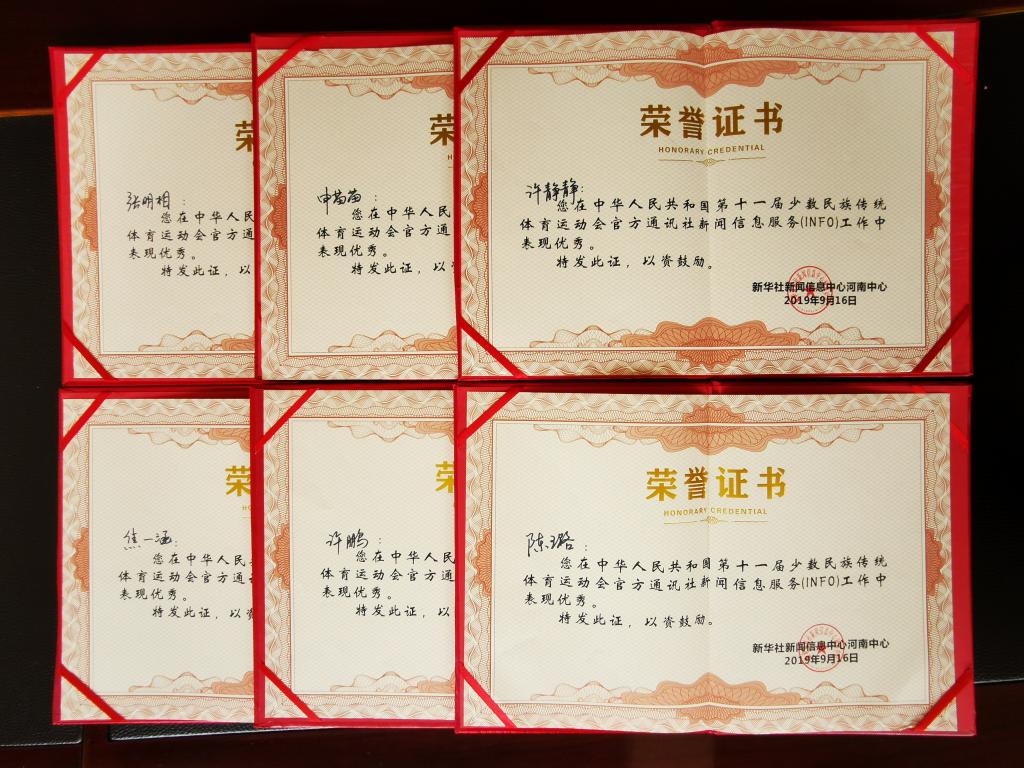 荣
张明相：
您在中华人民
体育运动会官方通
表现优秀。
特发此证，以
荣
申苗苗：
您在中华人民
体育运动会官方通
表现优秀。
特发此证，以资
荣誉证书
HONORARY CREDENTIAL
许静静：
您在中华人民共和国第十一届少数民族传统
体育运动会官方通讯社新闻信息服务(INFO)工作中
表现优秀。
特发此证，以资鼓励。
新华社新闻信息中心河南中心
2019年9月16日
荣
焦一涵：
您在中华人民
体育运动会官方通讯
表现优秀。
特发此证，以资
荣
许鹏：
您在中华人民
体育运动会官方通
表现优秀。
特发此证，以资
荣誉证书
HONORARY CREDENTIAL
陈璐：
您在中华人民共和国第十一届少数民族传统
体育运动会官方通讯社新闻信息服务(INFO)工作中
表现优秀。
特发此证，以资鼓励。
新华社新闻信息中心河南中心
2019年9月16日